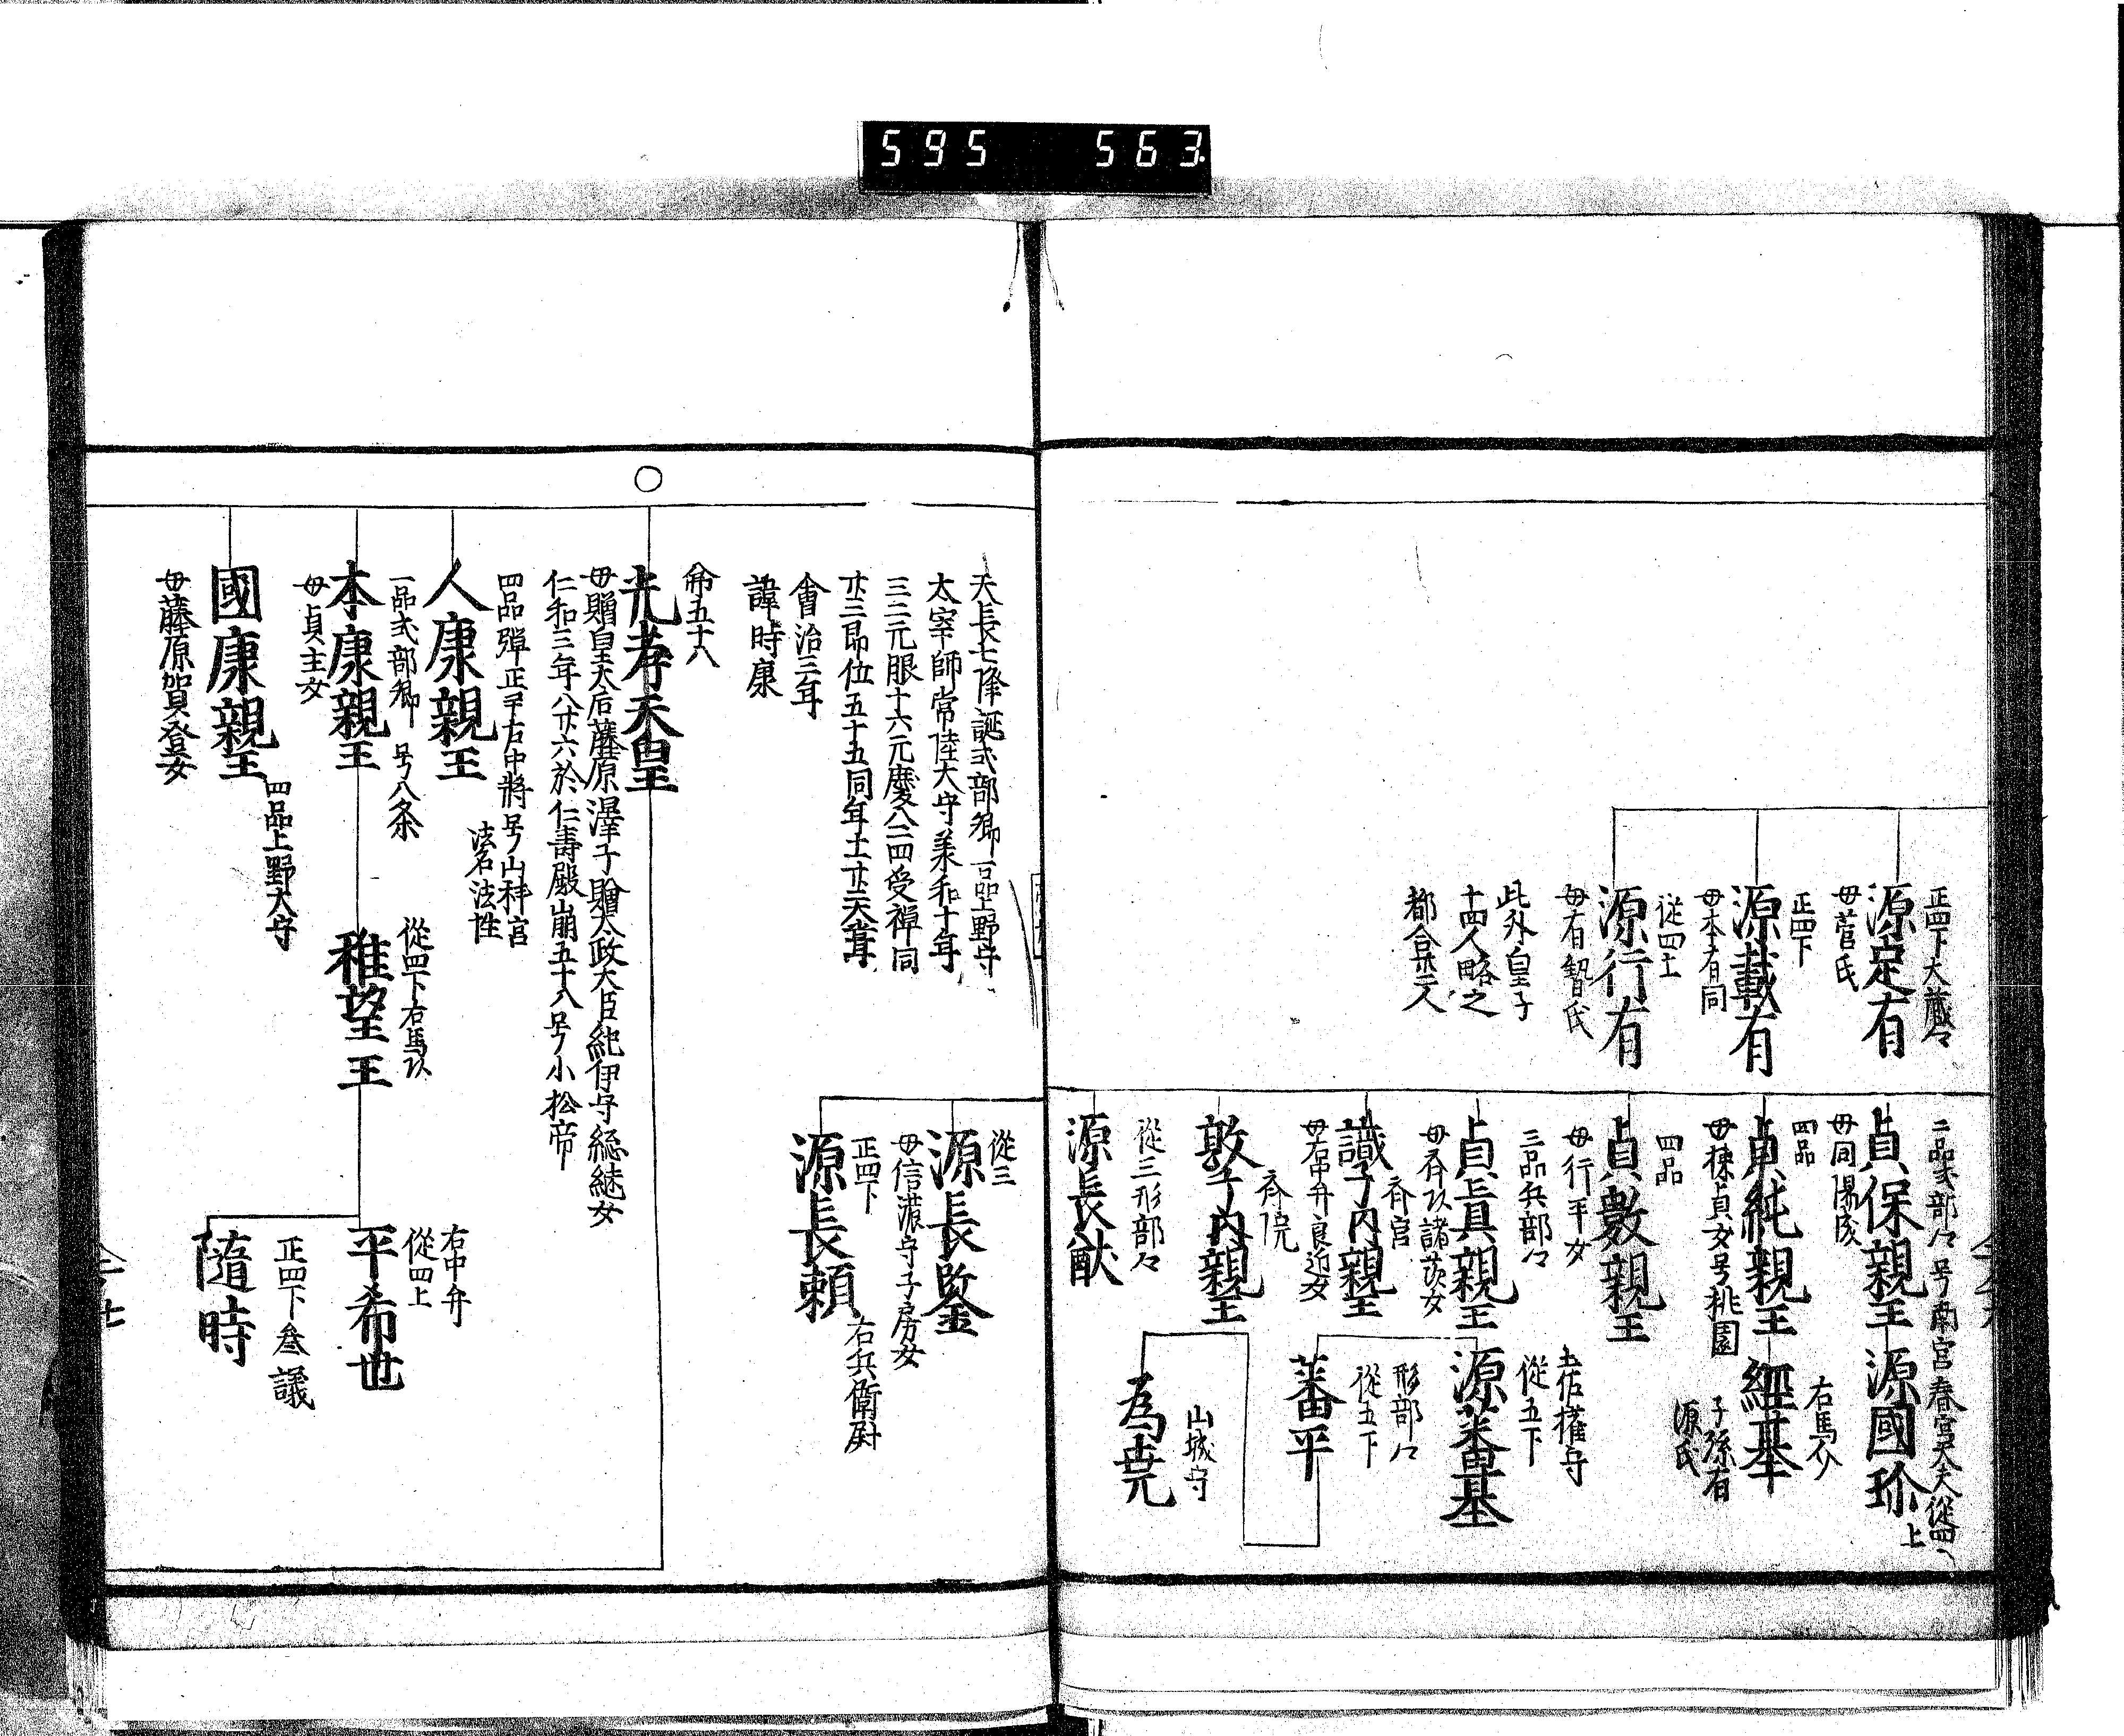 595 563
正四下大蔵々
源定有
母菅氏
正四下
源載有
母本有同
従四上
源行有
母布勢氏
此外皇子
十四人略之
都合
二品式部々号南宮春宮大夫従四上
貞保親王
源國珍
母同陽成
四品
貞純親王
母棟貞女号桃園
右馬介
經基
子孫有
源氏
四品
貞數親王
母行平女
三品兵部々
貞真親王
母斉以諸茂女
土佐権守
従五下
源蕃基
形部々
従五下
蕃平
山城守
為堯
斉宮
識子内親王
母右中弁良近女
斉院
敦子内親王
従三形部々
源長猷
従三
源長鑒
母信濃守子房女
正四下
源長頼
右兵衛尉
天長七降誕式部卿一品上野守
太宰師常陸大守承和十年
三二元服十六元慶八二四受禅同
廿三即位五十五同年
會治三年
諱時康
命五十八
光孝天皇
母贈皇太后藤原澤子贈太政大臣紀伊守総継女
仁和三年八廿六於仁壽殿崩五十八号小松帝
四品弾正尹右中将号山科宮
法名法性
人康親王
一品式部卿 号八条
本康親王
母貞主女
従四下右馬以
雅望王
右中弁
従四上
平希世
正四下叅議
隨時
國康親王
四品上野大守
母藤原賀登女